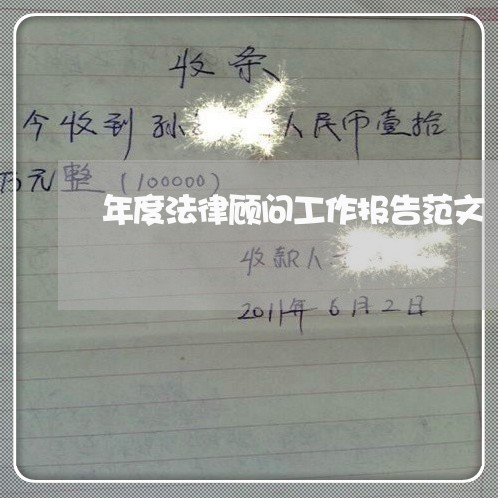 收条
今收到孙 人民币壹拾
万元整 (100000)
年度法律顾问工作报告范文
收款人
2011年6月2日